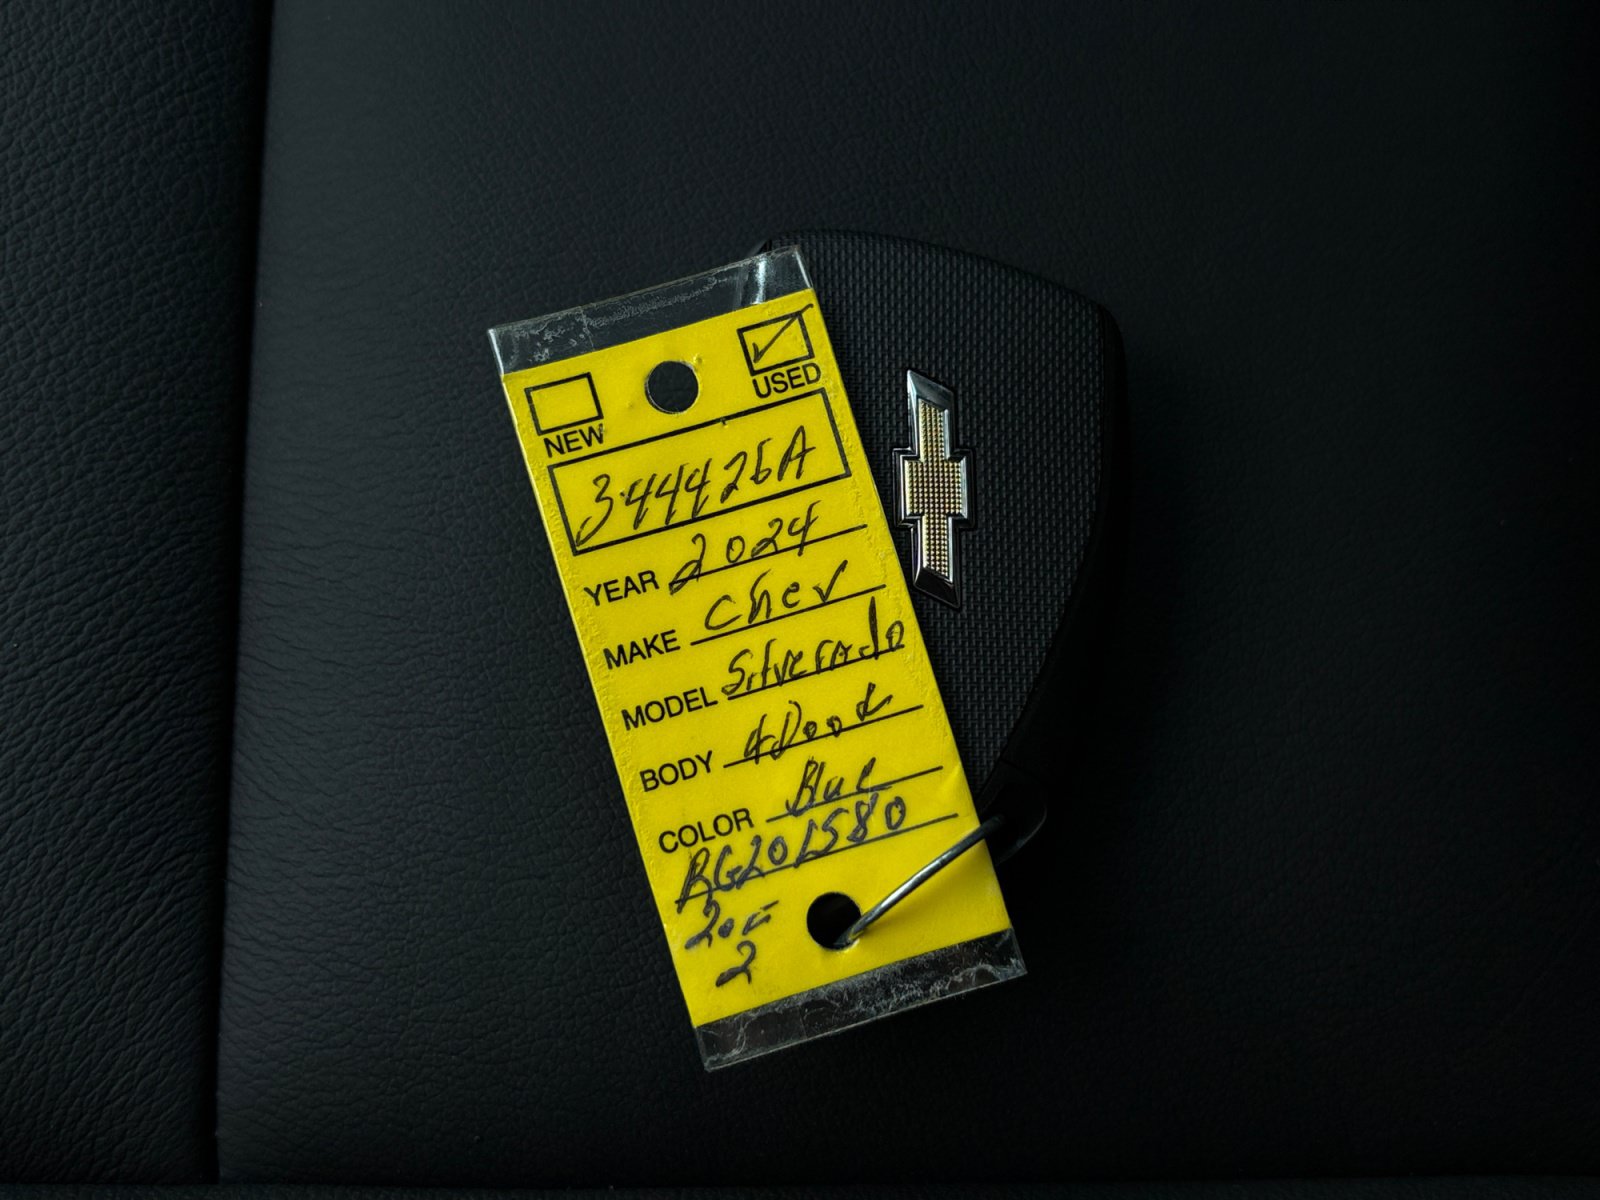 NEW USED
344426A
YEAR 2024
MAKE Chev
MODEL Silverado
BODY 4Door
COLOR Blue
RG201580
2